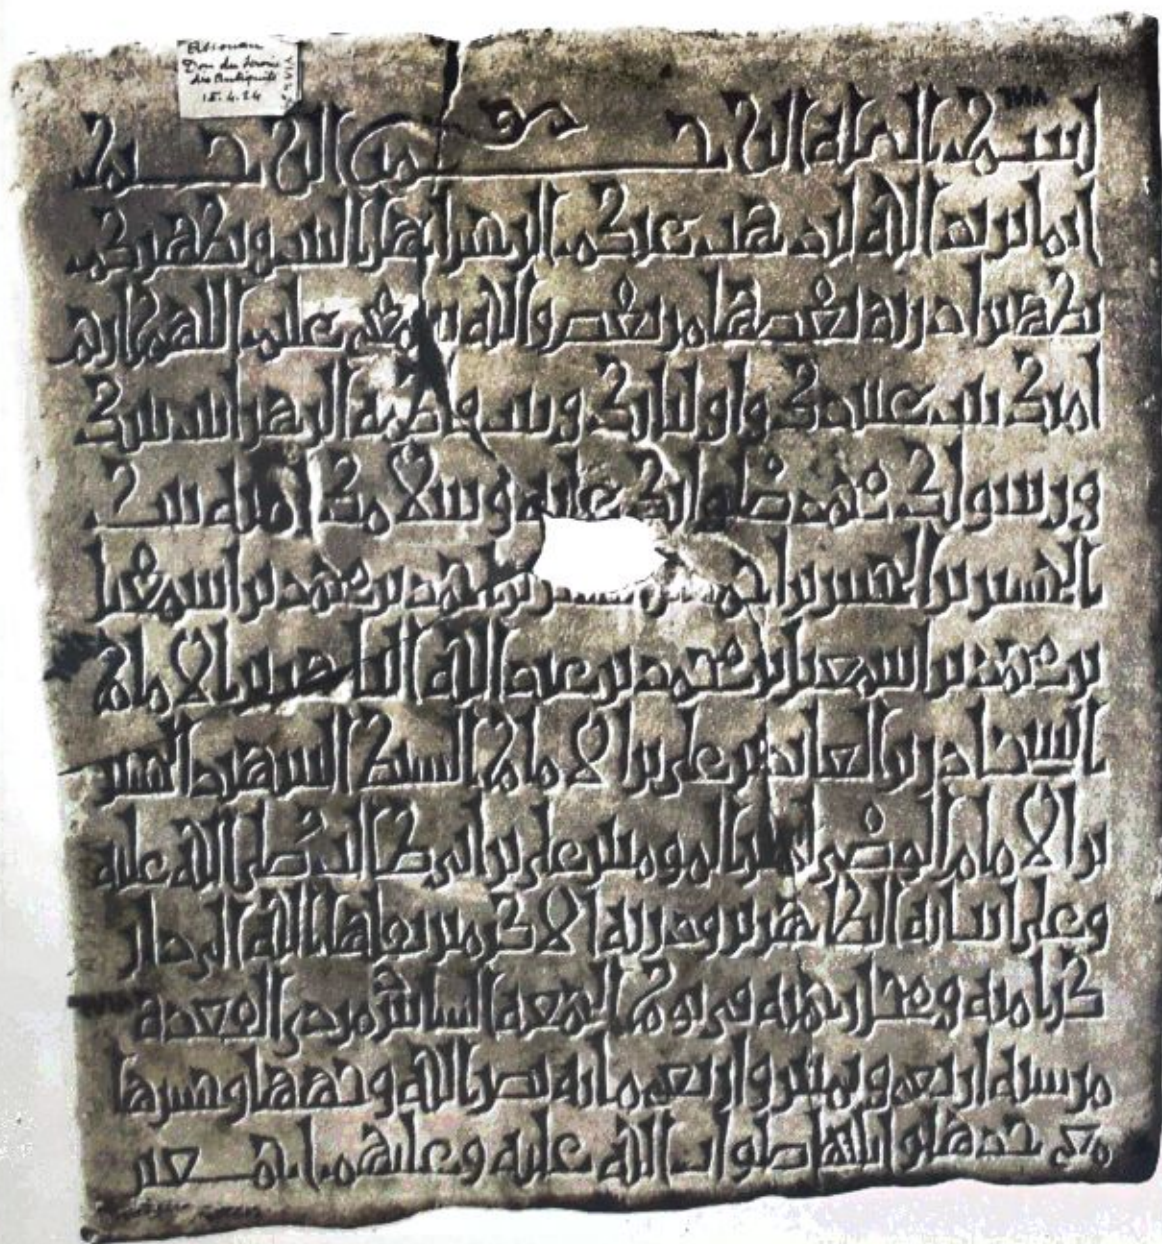 Assouan
Don du Service
des Antiquités
15.4.24
بسم الله الرحمن الرحيم
انما يريد الله ليذهب عنكم الرجس اهل البيت ويطهركم
تطهيرا ذرية بعضها من بعض والله سميع عليم اللهم ارحم
امتك بنت عبيدك واوليائك فاطمة الزهرا بنت نبيك
ورسولك محمد صلواتك عليه وسلامك امنة بنت
الحسين بن الحسن بن احمد بن محمد بن اسمعيل
بن محمد بن اسمعيل بن محمد بن عبد الله بن الامام
السجاد زين العابدين علي بن الامام السبط الشهيد الحسين
بن الامام الوصي امير المومنين علي بن ابي طالب صلى الله عليه
وعلى ابنائه الطاهرين وذريته الاكرمين نقلها الله الى دار
كرامته ومحل رحمته في يوم الجمعة من ذي القعدة
من سنة اربع واربع مائة نضر الله وجهها وحشرها
مع جدها وابائها صلوات الله عليه وعليهم اجمعين